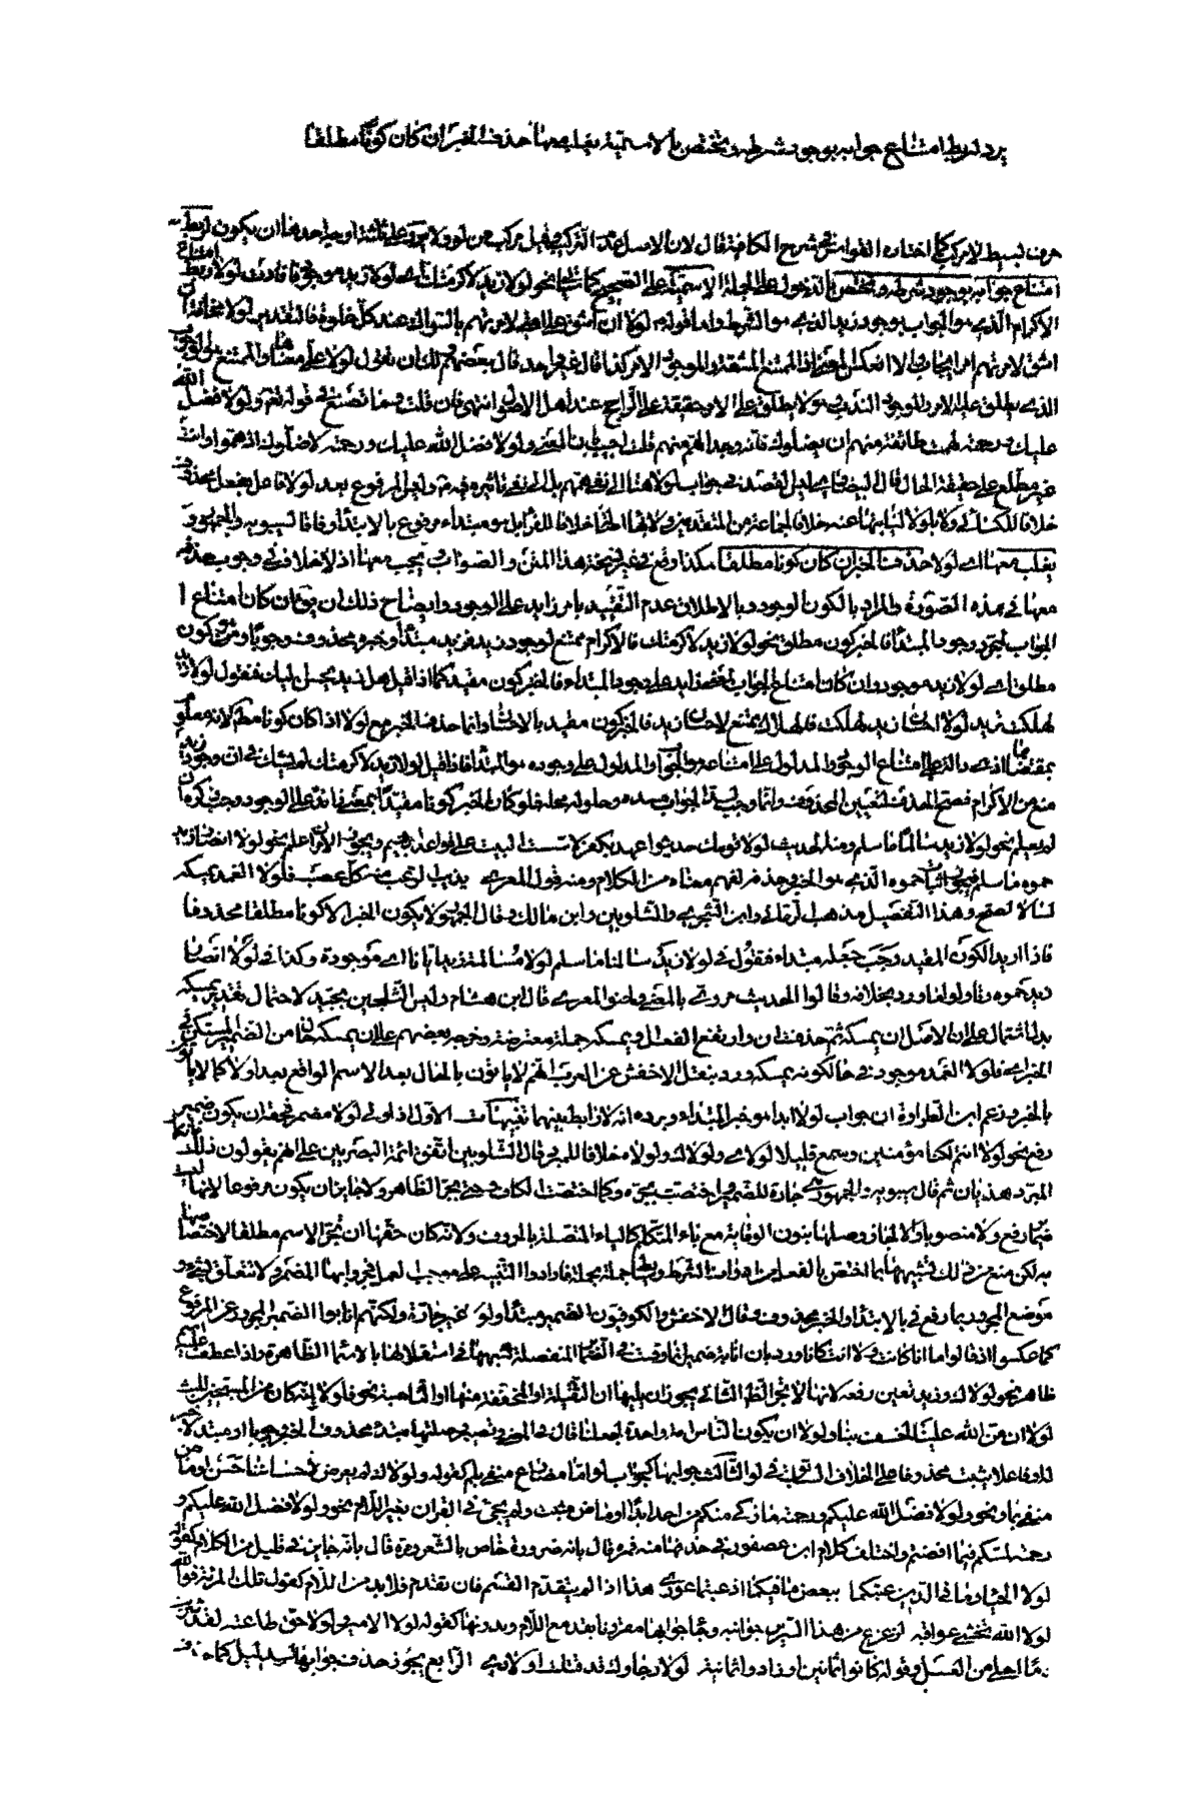 يرد لربط امتناع جوابه بوجود شرطه ويختص بالاسمية يغلب معها حذف الخبر ان كان كونا مطلقا
حرف بسيط لا مركب كما اختاره القواس في شرح الكافية قال لان الاصل عدم التركيب وقيل مركب من لو ولا وهو على ثلاثة اوجه احدها ان يكون لربط
امتناع جوابه بوجود شرطه ويختص بالدخول على الجملة الاسمية على الصحيح كما سياتي نحو لولا زيد لاكرمتك اي لولا زيد موجود فافادت لولا ربط امتناع
الاكرام الذي هو الجواب بوجود زيد الذي هو الشرط واما قوله لولا ان اشق على امتي لامرتهم بالسواك عند كل صلاة فالتقدير لولا مخافة ان
اشق لامرتهم امر ايجاب والا انعكس المعنى اذ الممتنع المشقة والموجود الامر كذا قال غير واحد قال بعضهم ولك ان تقول لولا على معناها والممتنع هو الوجوب
الذي يطلق عليه الامر والموجود الندب وهو لا يطلق عليه الامر حقيقة على الراجح عند اهل الاصول انتهى فان قلت فما تصنع في قوله تعالى ولولا فضل الله
عليك ورحمته لهمت طائفة منهم ان يضلوك فانه وجد الهم منهم قلت اجيب بان المعنى ولولا فضل الله عليك ورحمته لاضلوك اذ هموا وانت
غير مطلع على حقيقة الحال قال البيضاوي ليس القصد في جواب لولا هنا الى نفي همهم بل الى نفي تاثيره فيه وليس المرفوع بعد لولا فاعلا بفعل محذوف
خلافا للكسائي ولا بلولا لنيابتها عنه خلافا لجماعة من المتقدمين ولا بها اصالة خلافا للفراء بل هو مبتداء مرفوع بالابتداء وفاقا لسيبويه والجمهور
يغلب معها اي لولا حذف الخبر ان كان كونا مطلقا هكذا وقع في غير نسخة هذا المتن والصواب يجب معها اذ لا خلاف في وجوب حذفه
معها في هذه الصورة والمراد بالكون الوجود وبالاطلاق عدم التقييد بامر زايد على الوجود وايضاح ذلك ان يقال ان كان امتناع
الجواب لمجرد وجود المبتدا فالخبر كون مطلق نحو لولا زيد لاكرمتك فالاكرام ممتنع لوجود زيد فزيد مبتدأ وخبره محذوف وجوبا وهو كون
مطلق اي لولا زيد موجود وان كان امتناع الجواب لمعنى زايد على وجود المبتداء فالخبر كون مقيد كما اذا قيل هل زيد محسن اليك فتقول لولا زيد
لهلكت تريد لولا احسان زيد لهلكت فالهلاك يمتنع لاحسان زيد فالخبر كون مقيد بالاحسان وانما حذف الخبر مع لولا اذا كان كونا مطلقا لانه معلوم
بمقتضاها اذ هي دالة على امتناع الوجود والمدلول على امتناعه هو الجواب والمدلول على وجوده هو المبتدأ فاذا قيل لولا زيد لاكرمتك لم يشك في ان وجود زيد
منع من الاكرام فصح الحذف لتعين المحذوف وانما وجب لسد الجواب مسده وحلوله محله فلو كان الخبر كونا مقيدا بمعنى زايد على الوجود وجب ذكره ان
لم يعلم نحو لولا زيد سالمنا ما سلم ومنه الحديث لولا قومك حديثو عهد بكفر لاسست البيت على قواعد ابراهيم ويجوز الامران ان علم نحو لولا انصار زيد
حموه ما سلم فيجوز اثبات حموه الذي هو الخبر وحذفه لفهم معناه من الكلام ومنه قول المعري يذيب الرعب منه كل عضب فلولا الغمد يمسكه
لسالا لصح وهذا التفصيل مذهب الرماني وابن الشجري والشلوبين وابن مالك وقال الجمهور لا يكون الخبر الا كونا مطلقا محذوفا
فاذا اريد الكون المقيد وجب جعله مبتداء فتقول في لولا زيد سالمنا ما سلم لولا مسالمة زيد ايانا اي موجودة وكذا في لولا انصار
زيد حموه وتاولوا ما ورد بخلافه وقالوا الحديث مروي بالمعنى ولحنوا المعري قال ابن هشام وليس التلحين بجيد لاحتمال تقدير يمسكه
بدل اشتمال على ان الاصل ان يمسكه ثم حذفت ان وارتفع الفعل او يمسكه جملة معترضة وخرجه بعضهم على ان يمسكه حال من الضمير المستكن في
الخبر اي فلولا الغمد موجود في حال كونه يمسكه ورد بنقل الاخفش عن العرب انهم لا ياتون بالحال بعد الاسم الواقع بعد لولا كما لا ياتون
بالخبر وزعم ابن الطراوة ان جواب لولا ابدا هو خبر المبتداء ويرده انه لا رابط بينهما تنبيهات الاول اذا ولي لولا مضمر فحقه ان يكون ضمير
رفع نحو لولا انتم لكنا مؤمنين وسمع قليلا لولاي ولولاك ولولاه خلافا للمبرد قال الشلوبين اتفق ائمة البصريين على انهم يقولون ذلك وانكار
المبرد هذيان ثم قال سيبويه والجمهور هي جارة للضمير اختصت بجره كما اختصت الكاف وحتى بجر الظاهر ولا جايز ان يكون مرفوعا لانها ليست
ضماير رفع ولا منصوبا والا لجاز وصلها بنون الوقاية مع ياء المتكلم كالياء المتصلة بالحروف ولانه كان حقها ان تجر الاسم مطلقا لاختصاصها
به لكن منع من ذلك شبهها بما اختص بالفعل من ادوات الشرط وربط جملة بجملة فارادوا التنبيه على موجب العمل فجروا بها المضمر ولا تتعلق بشيء و
موضع المجرور بها رفع بالابتداء والخبر محذوف وقال الاخفش والكوفيون الضمير مبتدأ ولولا غير جارة ولكنهم انابوا الضمير المجرور عن المرفوع
كما عكسوا اذ قالوا ما انا كانت ولا انت كانا ورد بان انابة ضمير عن ضمير انما وقعت في الضمائر المنفصلة لشبهها في استقلالها بالاسماء الظاهرة واذا عطف عليه اسم
ظاهر نحو لولاك وزيد تعين رفعه لانها لا تجر الظاهر الثاني يجوز ان يليها ان الثقيلة او المخففة منها او الناصبة نحو فلولا انه كان من المسبحين للبث
لولا ان من الله علينا لخسف بنا ولولا ان يكون الناس امة واحدة لجعلنا قال في المغني وتصير وصلتها مبتدأ محذوف الخبر وجوبا او مبتدأ لا خبر
له او فاعلا بثبت محذوفا على الخلاف السابق في لو الثالث جوابها كجواب لو اما مضارع منفي بلم كقوله ولولا الله لم يعرض في احسابنا حسن او ماض
منفي بما ونحو ولولا فضل الله عليكم ورحمته ما زكى منكم من احد ابدا او ماض مثبت ولم يجئ في القرآن بغير اللام نحو ولولا فضل الله عليكم و
رحمته لمسكم فيما افضتم واختلف كلام ابن عصفور في حذفها منه فمرة قال بانه ضرورة خاص بالشعر ومرة قال بانه جايز في قليل من الكلام كقوله
لولا الحياء وما في الدين عبتكما ببعض ما فيكما اذ عبتما عوري هذا اذا لم يتقدم القسم فان تقدم فلا بد من اللام كقول تلك المرأة فوالله
لولا الله تخشى عواقبه لزعزع من هذا السرير جوانبه وربما جوابها مقرونا بقد مع اللام وبدونها كقوله لولا الامير ولولا حق طاعته لقد شربت
دما احلى من العسل وقوله كانوا ثمانين او زادوا ثمانية لولا رجاؤك قد قتلت اولادي الرابع يجوز حذف جوابها لدليل كما